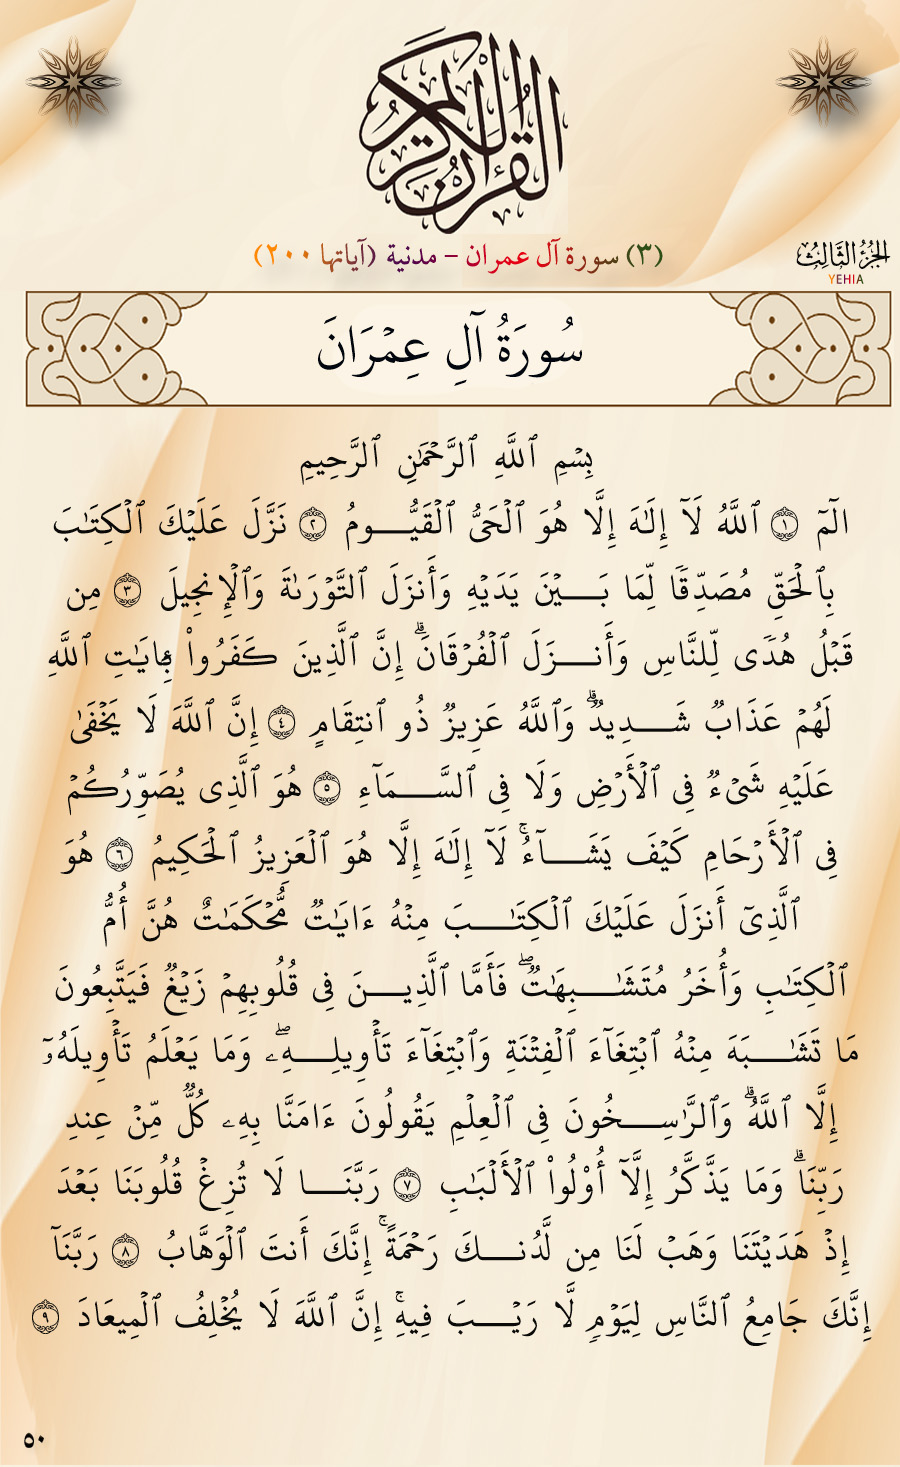 القرآن الكريم
(٣) سورة آل عمران – مدنية (آياتها ٢٠٠)
الجزء الثالث
YEHIA
سُورَةُ آلِ عِمْرَانَ
بِسْمِ ٱللَّهِ ٱلرَّحْمَٰنِ ٱلرَّحِيمِ
الٓمٓ ١ ٱللَّهُ لَآ إِلَٰهَ إِلَّا هُوَ ٱلْحَىُّ ٱلْقَيُّـــومُ ٢ نَزَّلَ عَلَيْكَ ٱلْكِتَٰبَ
بِٱلْحَقِّ مُصَدِّقًا لِّمَا بَـــيْنَ يَدَيْهِ وَأَنزَلَ ٱلتَّوْرَىٰةَ وَٱلْإِنجِيلَ ٣ مِن
قَبْلُ هُدًى لِّلنَّاسِ وَأَنـــزَلَ ٱلْفُرْقَانَ ۗ إِنَّ ٱلَّذِينَ كَفَرُوا۟ بِـَٔايَٰتِ ٱللَّهِ
لَهُمْ عَذَابٌ شَـــدِيدٌ ۗ وَٱللَّهُ عَزِيزٌ ذُو ٱنتِقَامٍ ٤ إِنَّ ٱللَّهَ لَا يَخْفَىٰ
عَلَيْهِ شَىْءٌ فِى ٱلْأَرْضِ وَلَا فِى ٱلسَّـــمَآءِ ٥ هُوَ ٱلَّذِى يُصَوِّرُكُمْ
فِى ٱلْأَرْحَامِ كَيْفَ يَشَـــآءُ ۚ لَآ إِلَٰهَ إِلَّا هُوَ ٱلْعَزِيزُ ٱلْحَكِيمُ ٦ هُوَ
ٱلَّذِىٓ أَنزَلَ عَلَيْكَ ٱلْكِتَٰـــبَ مِنْهُ ءَايَٰتٌ مُّحْكَمَٰتٌ هُنَّ أُمُّ
ٱلْكِتَٰبِ وَأُخَرُ مُتَشَٰـــبِهَٰتٌ ۖ فَأَمَّا ٱلَّذِيـــنَ فِى قُلُوبِهِمْ زَيْغٌ فَيَتَّبِعُونَ
مَا تَشَٰـــبَهَ مِنْهُ ٱبْتِغَآءَ ٱلْفِتْنَةِ وَٱبْتِغَآءَ تَأْوِيلِـــهِۦ ۖ وَمَا يَعْلَمُ تَأْوِيلَهُۥٓ
إِلَّا ٱللَّهُ ۗ وَٱلرَّٰسِـــخُونَ فِى ٱلْعِلْمِ يَقُولُونَ ءَامَنَّا بِهِۦ كُلٌّ مِّنْ عِندِ
رَبِّنَا ۗ وَمَا يَذَّكَّرُ إِلَّآ أُو۟لُوا۟ ٱلْأَلْبَٰبِ ٧ رَبَّنَـــا لَا تُزِغْ قُلُوبَنَا بَعْدَ
إِذْ هَدَيْتَنَا وَهَبْ لَنَا مِن لَّدُنـــكَ رَحْمَةً ۚ إِنَّكَ أَنتَ ٱلْوَهَّابُ ٨ رَبَّنَآ
إِنَّكَ جَامِعُ ٱلنَّاسِ لِيَوْمٍ لَّا رَيْـــبَ فِيهِ ۚ إِنَّ ٱللَّهَ لَا يُخْلِفُ ٱلْمِيعَادَ ٩
٥٠